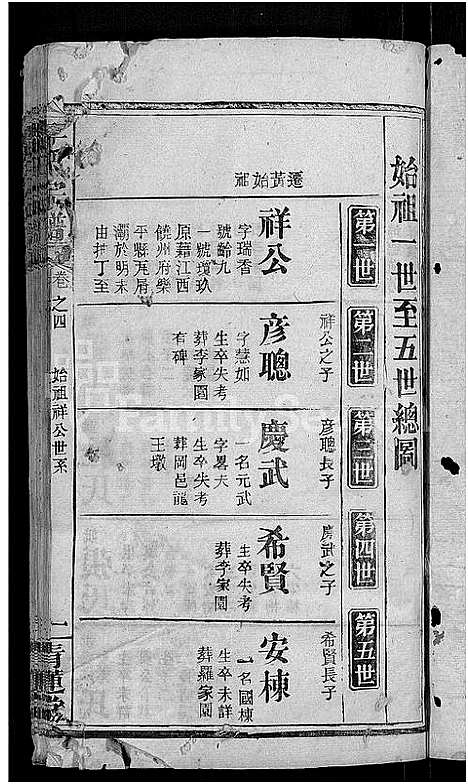 始祖一世至五世總圖
第一世
第二世
第三世
第四世
第五世
遷黃始祖
祥公
字瑞香
號齡九
一號瓊玖
原籍江西
饒州府樂
平縣瓦屑
灞於明末
由拼丁至
祥公之子
彥聰
字慧如
生卒失考
葬李家園
有碑
彥聰長子
慶武
一名元武
字暑夫
生卒失考
葬岡邑龍
王墩
慶武之子
希賢
生卒失考
葬李家園
希賢長子
安棟
一名國棟
生卒未詳
葬羅家園
譜
卷之四
始祖祥公世系
二
青蓮堂